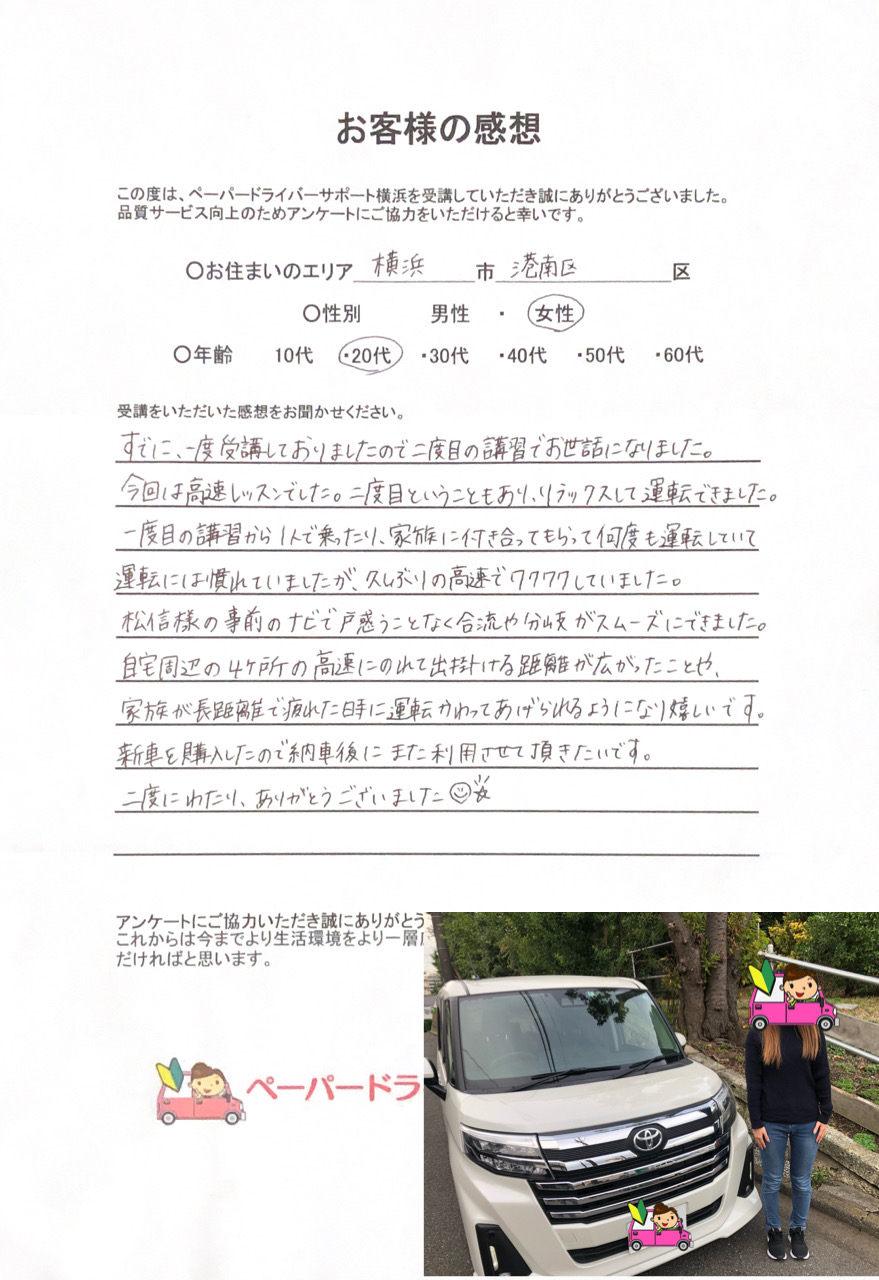 お客様の感想
この度は、ペーパードライバーサポート横浜を受講していただき誠にありがとうございました。
品質サービス向上のためアンケートにご協力をいただけると幸いです。
〇お住まいのエリア 横浜 市 港南区 区
〇性別 男性 ・ 女性
〇年齢 10代 ・20代 ・30代 ・40代 ・50代 ・60代
受講をいただいた感想をお聞かせください。
すでに、一度受講しておりましたので二度目の講習でお世話になりました。
今回は高速レッスンでした。二度目ということもあり、リラックスして運転できました。
一度目の講習から1人で乗ったり、家族に付き合ってもらって何度も運転していて
運転には慣れていましたが、久しぶりの高速でワクワクしていました。
松信様の事前のナビで戸惑うことなく合流や分岐がスムーズにできました。
自宅周辺の4ケ所の高速にのれて出掛ける距離が広がったことや、
家族が長距離で疲れた時に運転かわってあげられるようになり嬉しいです。
新車を購入したので納車後にまた利用させて頂きたいです。
二度にわたり、ありがとうございました
アンケートにご協力いただき誠にありがとう
これからは今までより生活環境をより一層
だければと思います。
ペーパードラ